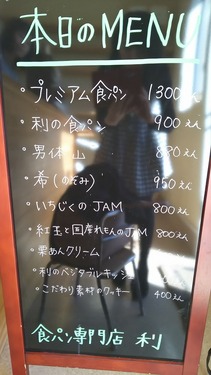 本日のMENU
・プレミアム食パン 1300えん
・利の食パン 900えん
・男体山 880えん
・希(のぞみ) 950えん
・いちじくのJAM 800えん
・紅玉と国産れもんのJAM 800えん
・栗あんクリーム
・利のベジタブルキッシュ
・こだわり素材のクッキー 400えん
食パン専門店 利